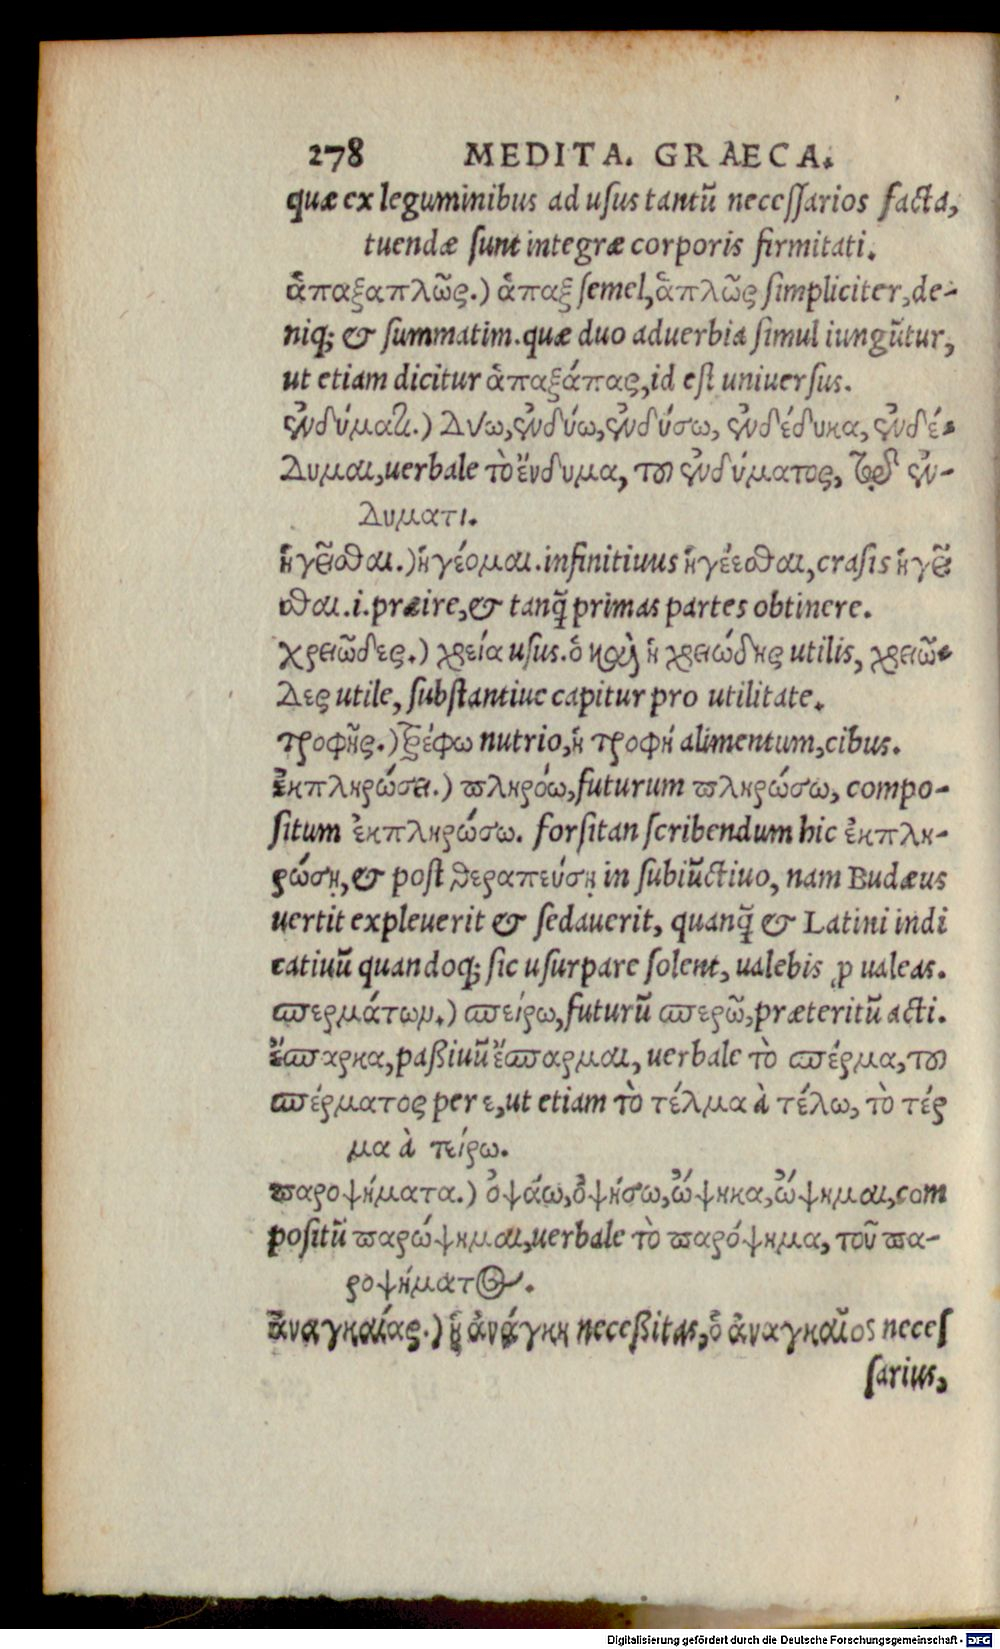 278 MEDITA. GRAECA.
quæ ex leguminibus ad usus tantũ necessarios facta,
tuendæ sunt integræ corporis firmitati.
ἅπαξαπλῶς.) ἅπαξ semel, ἁπλῶς simpliciter, de-
niq; & summatim. quæ duo aduerbia simul iungũtur,
ut etiam dicitur ἁπαξάπας, id est uniuersus.
ἐνδύματι.) Δύω, ἐνδύω, ἐνδύσω, ἐνδέδυκα, ἐνδέ-
Δυμαι, uerbale τὸ ἔνδυμα, τοῦ ἐνδύματος, τῷ ἐν-
Δυματι.
ἡγεῖσθαι.) ἡγέομαι. infinitiuus ἡγέεσθαι, crasis ἡγεῖ
σθαι. i. præire, & tanq̃ primas partes obtinere.
χρειῶδες.) χρεία usus. ὁ καὶ ἡ χρειώδης utilis, χρειῶ-
Δες utile, substantiue capitur pro utilitate.
τροφῆς.) τρέφω nutrio, ἡ τροφή alimentum, cibus.
ἐκπληρώσει.) πληρόω, futurum πληρώσω, compo-
situm ἐκπληρώσω. forsitan scribendum hic ἐκπλη-
ρώσῃ, & post θεραπεύσῃ in subiũctiuo, nam Budæus
uertit expleuerit & sedauerit, quanq̃ & Latini indi
catiuũ quandoq; sic usurpare solent, ualebis ꝓ ualeas.
σπερμάτων.) σπείρω, futurũ σπερῶ, præteritũ acti.
ἔσπαρκα, paßiuũ ἔσπαρμαι, uerbale τὸ σπέρμα, τοῦ
σπέρματος per ε, ut etiam τὸ τέλμα à τέλω, τὸ τέρ
μα à τείρω.
παροψήματα.) ὀψάω, ὀψήσω, ὤψηκα, ὤψημαι, com
positũ παρώψημαι, uerbale τὸ παρόψημα, τοῦ πα-
ροψήματος.
ἀναγκαίας.) ἡ ἀνάγκη neceßitas, ὁ ἀναγκαῖος neces
sarius,
Digitalisierung gefördert durch die Deutsche Forschungsgemeinschaft - DFG